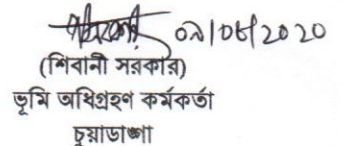 ০৯/০৮/২০২০
(শিবানী সরকার)
ভূমি অধিগ্রহণ কর্মকর্তা
চুয়াডাঙ্গা